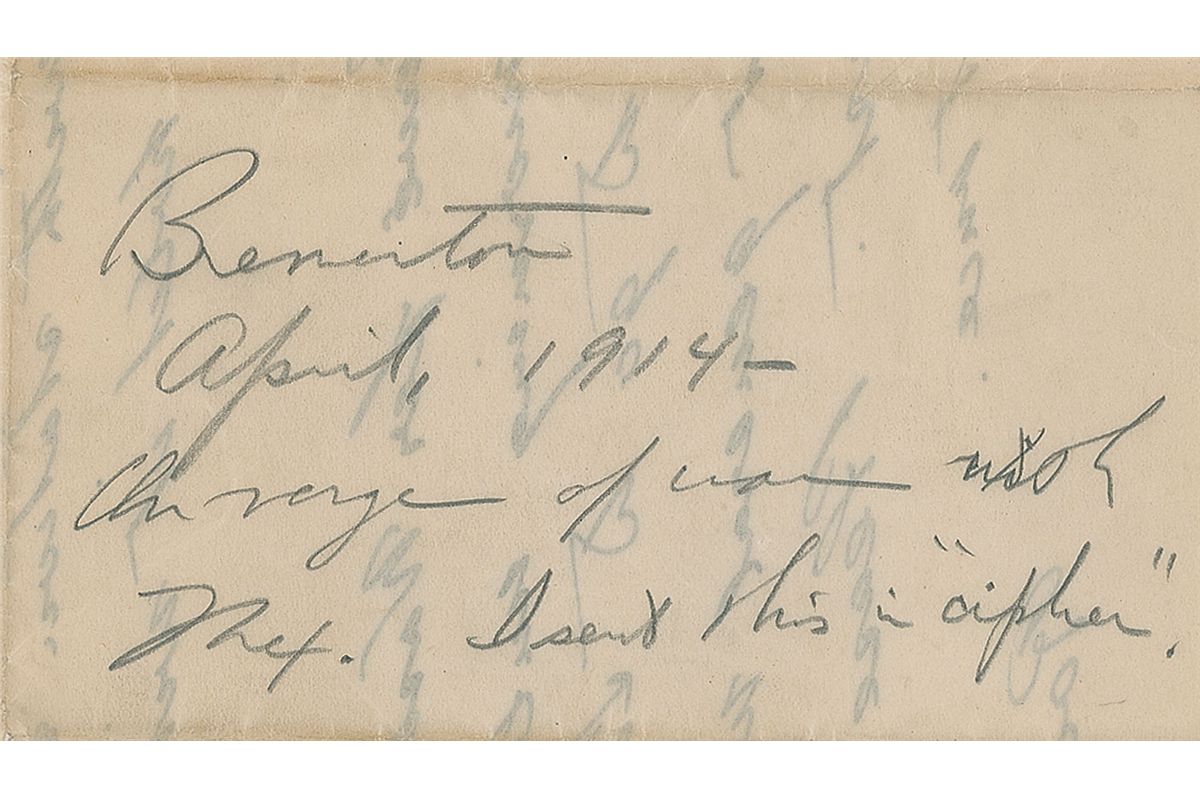 Bremerton
April, 1914 –
On verge of war with
Mex. I sent this in "cipher".